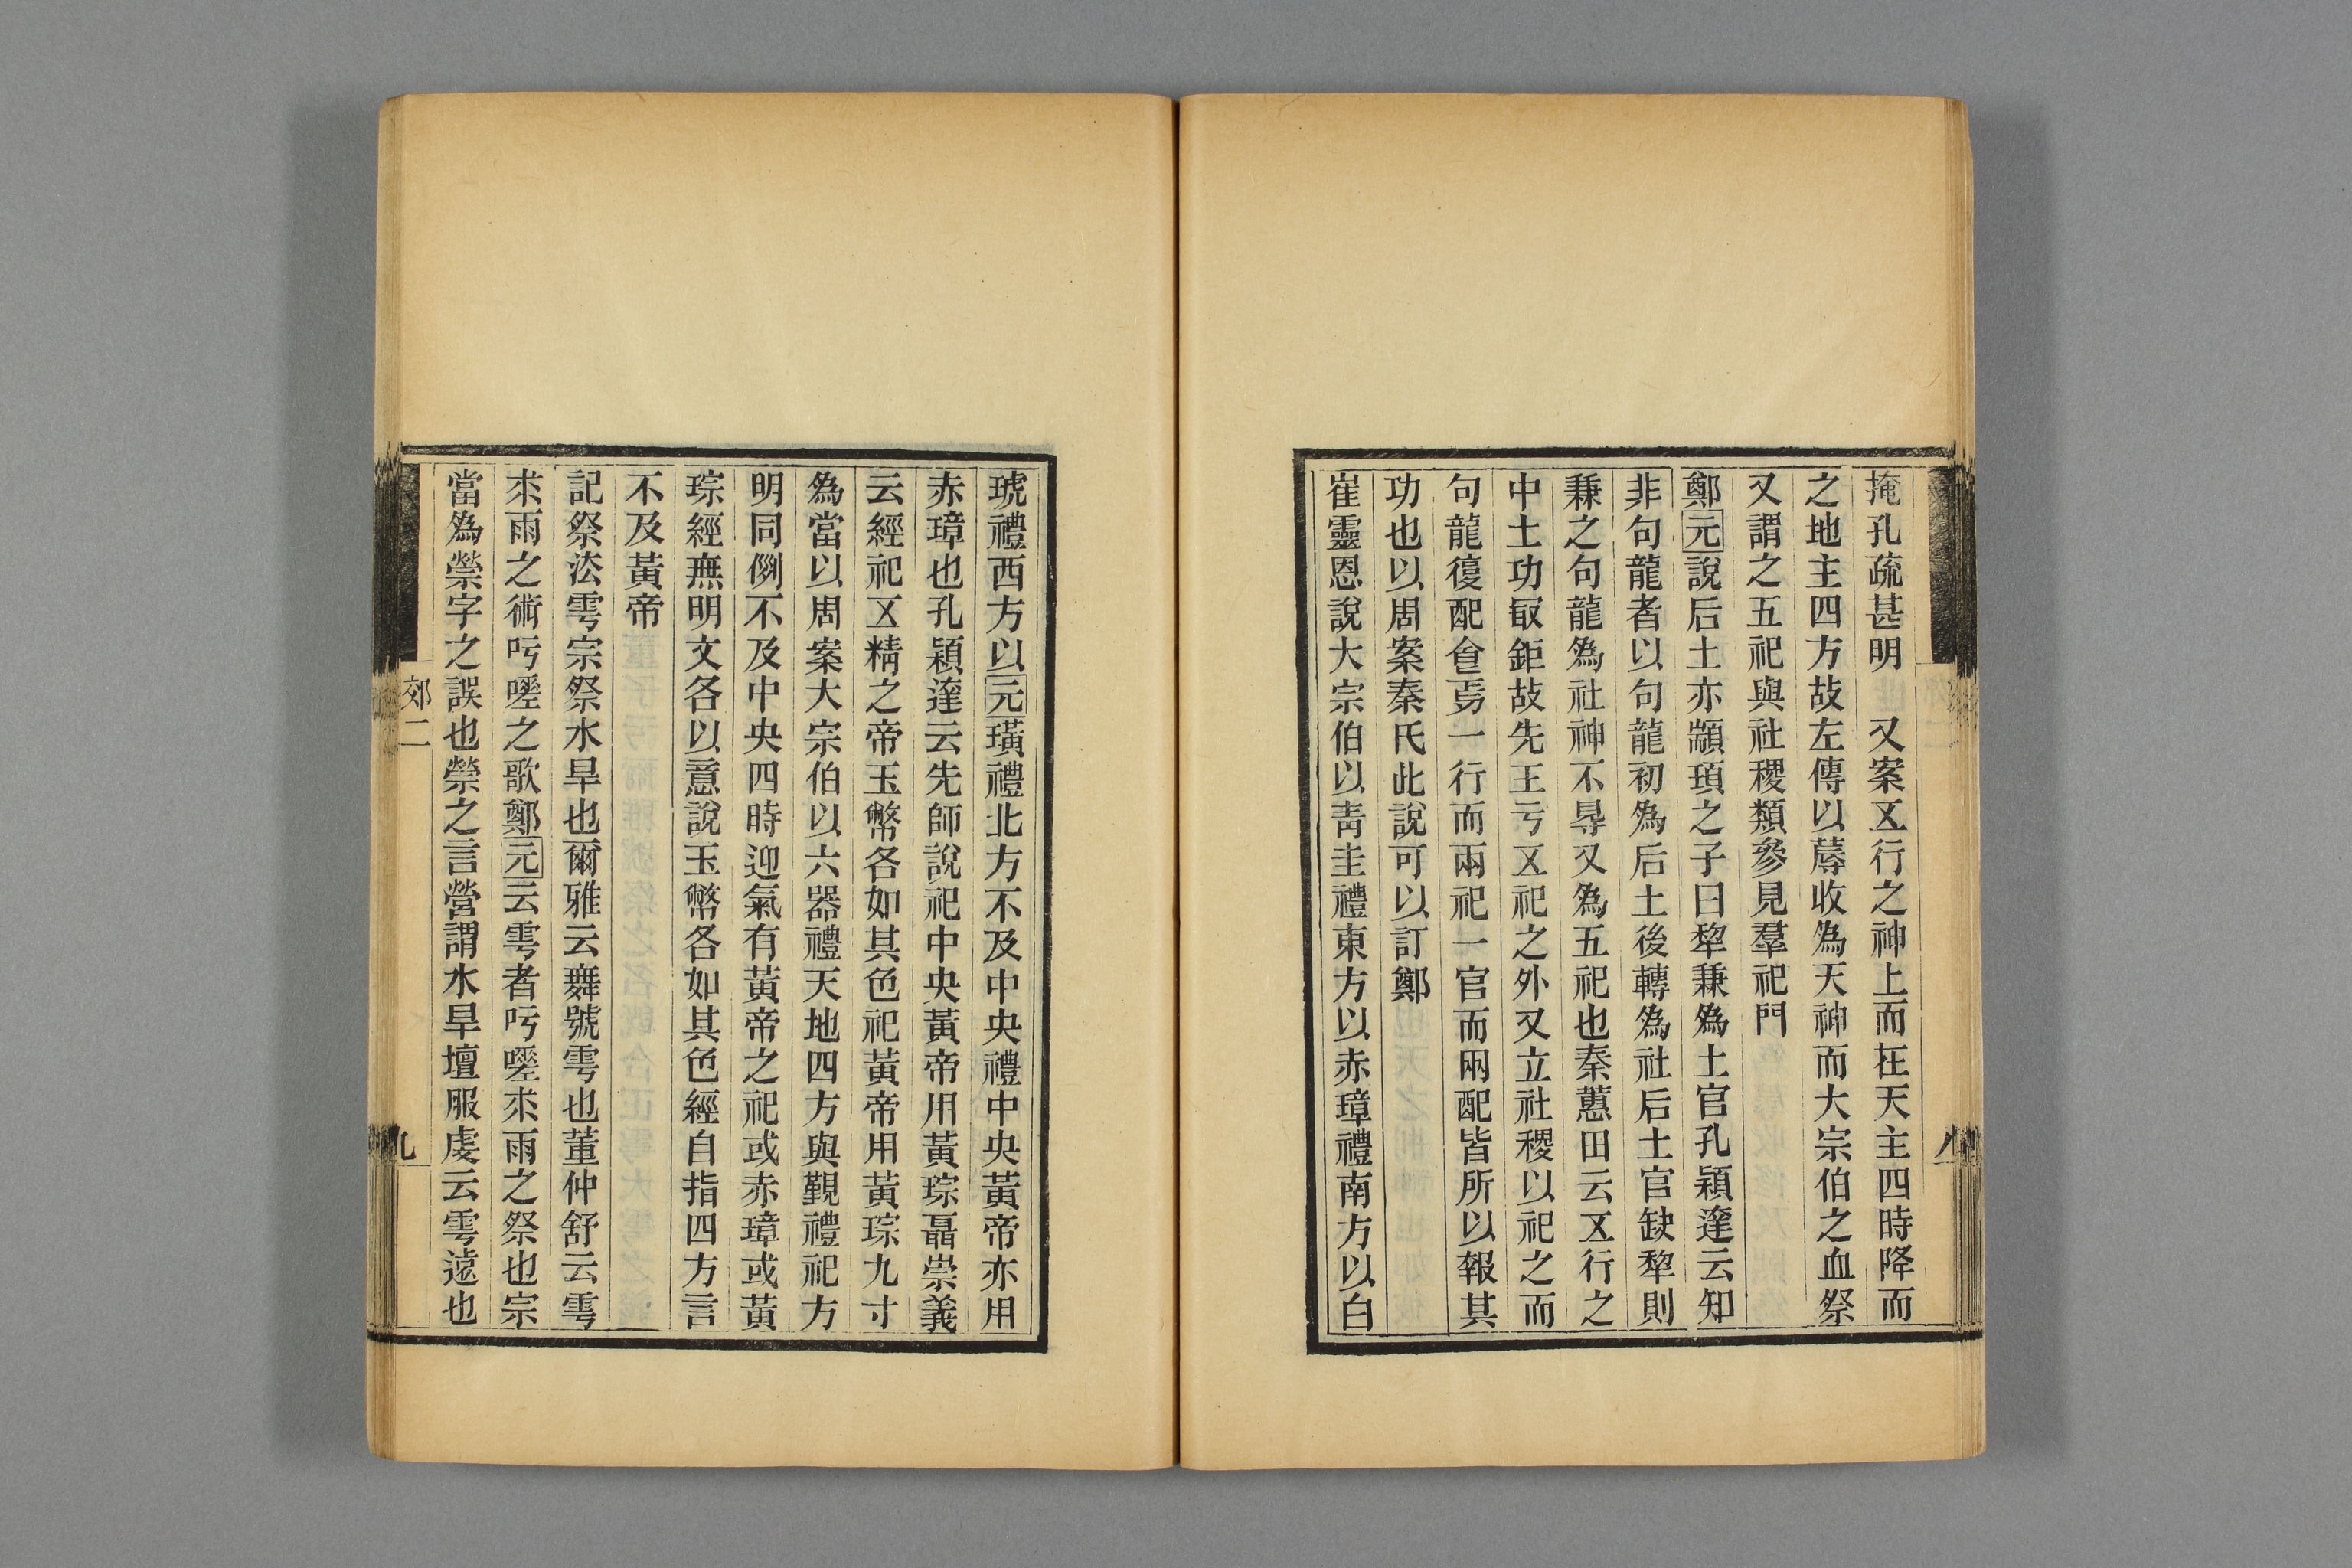 掩孔疏甚明　又案㐅行之神上而在天主四時降而
之地主四方故左傳以蓐收為天神而大宗伯之血祭
又謂之五祀與社稷類參見羣祀門
鄭元說后土亦顓頊之子曰犂兼為土官孔穎達云知
非句龍者以句龍初為后土後轉為社后土官缺犂則
兼之句龍為社神不㝵又為五祀也秦蕙田云㐅行之
中土功㝡鉅故先王亏㐅祀之外又立社稷以祀之而
句龍復配食焉一行而兩祀一官而兩配皆所以報其
功也以周案秦氏此說可以訂鄭
崔靈恩說大宗伯以靑圭禮東方以赤璋禮南方以白
琥禮西方以元璜禮北方不及中央禮中央黃帝亦用
赤璋也孔穎達云先師說祀中央黃帝用黃琮聶崇義
云經祀㐅精之帝玉幣各如其色祀黃帝用黃琮九寸
為當以周案大宗伯以六器禮天地四方與覲禮祀方
明同例不及中央四時迎氣有黃帝之祀或赤璋或黃
琮經無明文各以意說玉幣各如其色經自指四方言
不及黃帝
記祭法雩宗祭水旱也爾雅云舞號雩也董仲舒云雩
求雨之術吁嗟之歌鄭元云雩者吁嗟求雨之祭也宗
當為禜字之誤也禜之言營謂水旱壇服虔云雩遠也
郊二
九
八